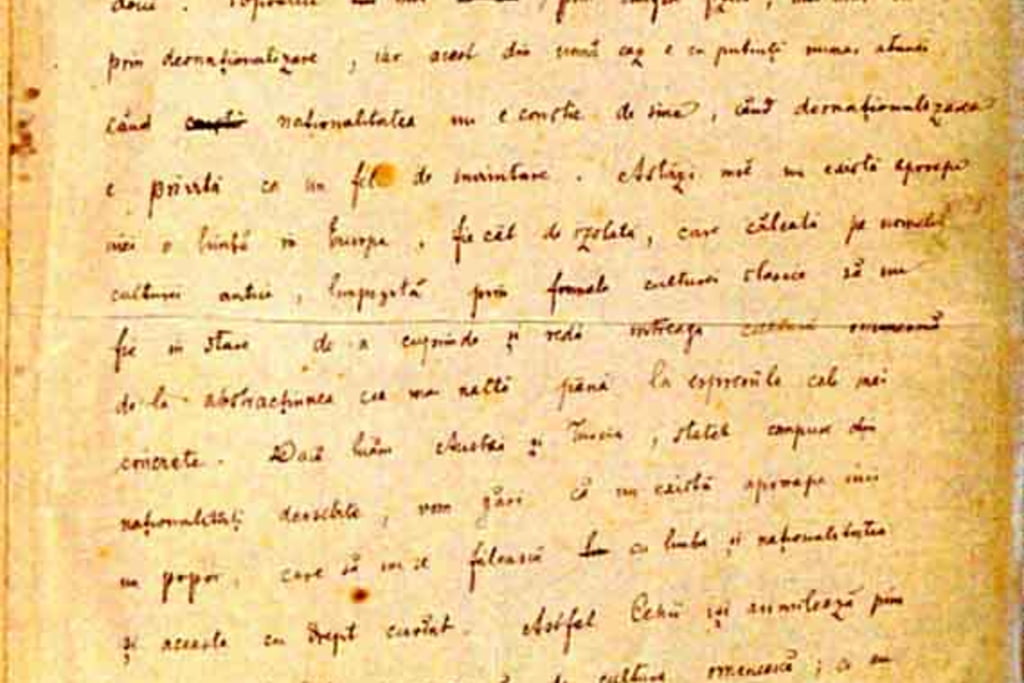 prin desnaționalizare, iar acest din urmă caz e cu putință numai atunci
când naționalitatea nu e conștie de sine, când desnaționalizarea
e privită ca un fel de înaintare. Astăzi însă nu există aproape
nici o limbă în Europa, fie cât de izolată, care călcată pe urmele
culturei antice, împinsă prin formele culturei clasice să nu
fie în stare de a cuprinde și reda întreaga omenească
de la abstracțiunea cea mai naltă până la espresiile cele mai
concrete. Dacă luăm Austria și Turcia, statele compuse din
naționalități deosebite, vom găsi că nu există aproape nici
un popor, care să nu se fălească cu limba și naționalitatea
și aceasta cu drept cuvânt. Astfel Cehii își asimilează prin
de cultura omenească; ce au